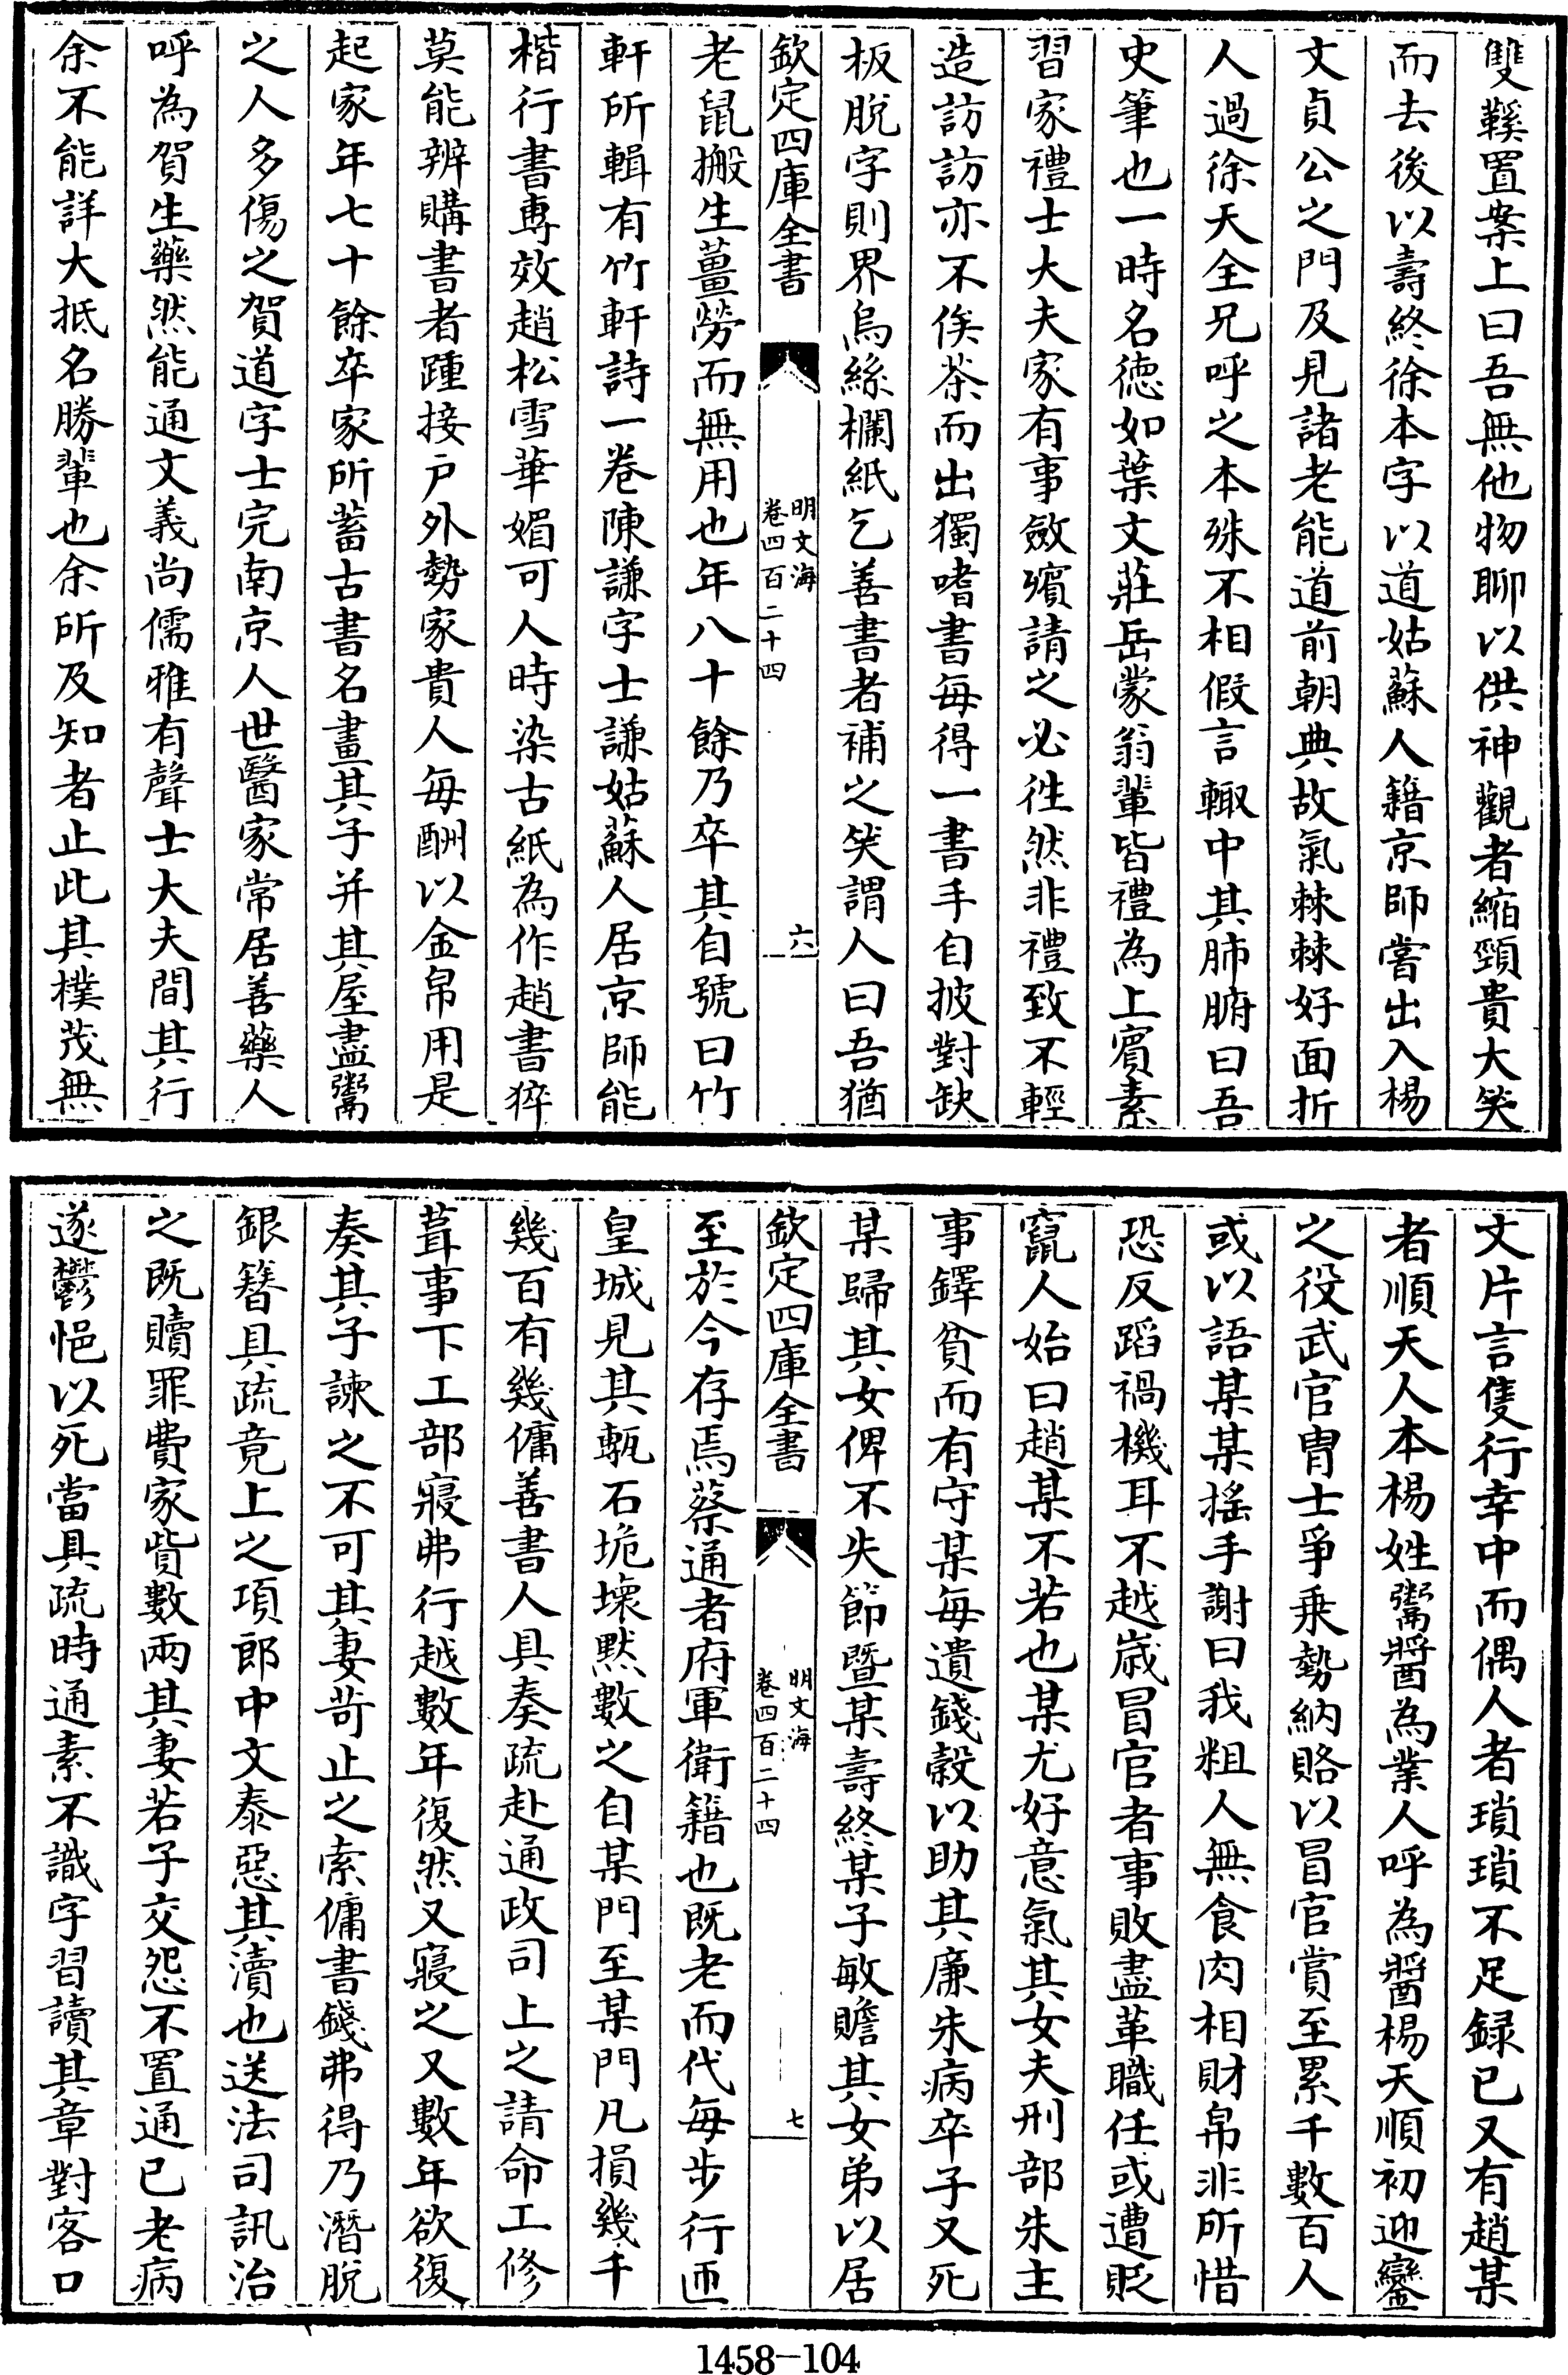 雙鞵置案上曰吾無他物聊以供神觀者縮頸貴大笑
而去後以壽終徐本字以道姑蘇人籍京師嘗出入楊
文貞公之門及見諸老能道前朝典故氣棘棘好面折
人過徐天全兄呼之本殊不相假言輙中其肺腑曰吾
史筆也一時名徳如葉文莊岳蒙翁輩皆禮為上賓素
習家禮士大夫家有事斂殯請之必徃然非禮致不輕
造訪訪亦不俟茶而出獨嗜書每得一書手自披對缺
板脫字則界烏絲欄紙乞善書者補之笑謂人曰吾猶
欽定四庫全書
明文海
卷四百二十四
六
老鼠搬生薑勞而無用也年八十餘乃卒其自號曰竹
軒所輯有竹軒詩一卷陳謙字士謙姑蘇人居京師能
楷行書專效趙松雪華媚可人時染古紙為作趙書猝
莫能辨購書者踵接户外勢家貴人每酬以金帛用是
起家年七十餘卒家所蓄古書名畫其子并其屋盡鬻
之人多傷之賀道字士完南京人世醫家常居善藥人
呼為賀生藥然能通文義尚儒雅有聲士大夫間其行
余不能詳大抵名勝輩也余所及知者止此其樸茂無
文片言隻行幸中而偶人者瑣瑣不足録已又有趙某
者順天人本楊姓鬻醬為業人呼為醬楊天順初迎鑾
之役武官冑士爭乗勢納賂以冒官賞至累千數百人
或以語某某揺手謝曰我粗人無食肉相財帛非所惜
恐反蹈禍機耳不越嵗冒官者事敗盡革職任或遭貶
竄人始曰趙某不若也某尤好意氣其女夫刑部朱主
事鐸貧而有守某每遺錢榖以助其廉朱病卒子又死
某歸其女俾不失節暨某壽終某子敏贍其女弟以居
欽定四庫全書
明文海
卷四百二十四
七
至於今存焉蔡通者府軍衛籍也既老而代每步行匝
皇城見其甎石垝壊黙數之自某門至某門凡損幾千
幾百有幾傭善書人具奏疏赴通政司上之請命工修
葺事下工部寢弗行越數年復然又寢之又數年欲復
奏其子諫之不可其妻苛止之索傭書錢弗得乃潛脫
銀簪具疏竟上之項郎中文泰惡其瀆也送法司訊治
之既贖罪費家貲數兩其妻若子交怨不置通已老病
遂鬱悒以死當具疏時通素不識字習讀其章對客口
1458-104